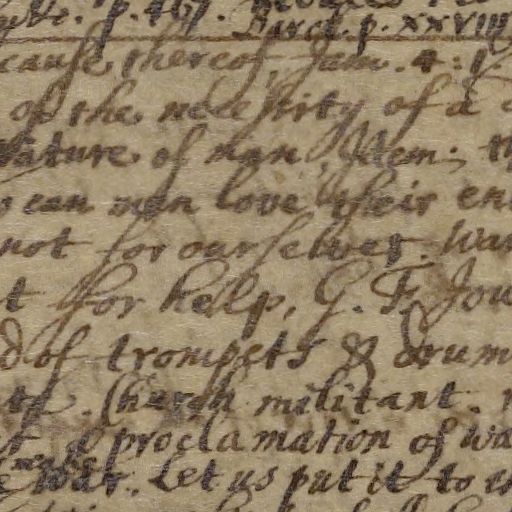 p. 467.
Barcl. p. XXVIII
cause thereof, Jam. 4: 1
of the necessity of a
Nature of man, Item. th
can men love their en
not for ourselves. War
t for help, G. F. Jou
d of trompets & drum
Church militant.
a proclamation of wa
War. Let us put it to